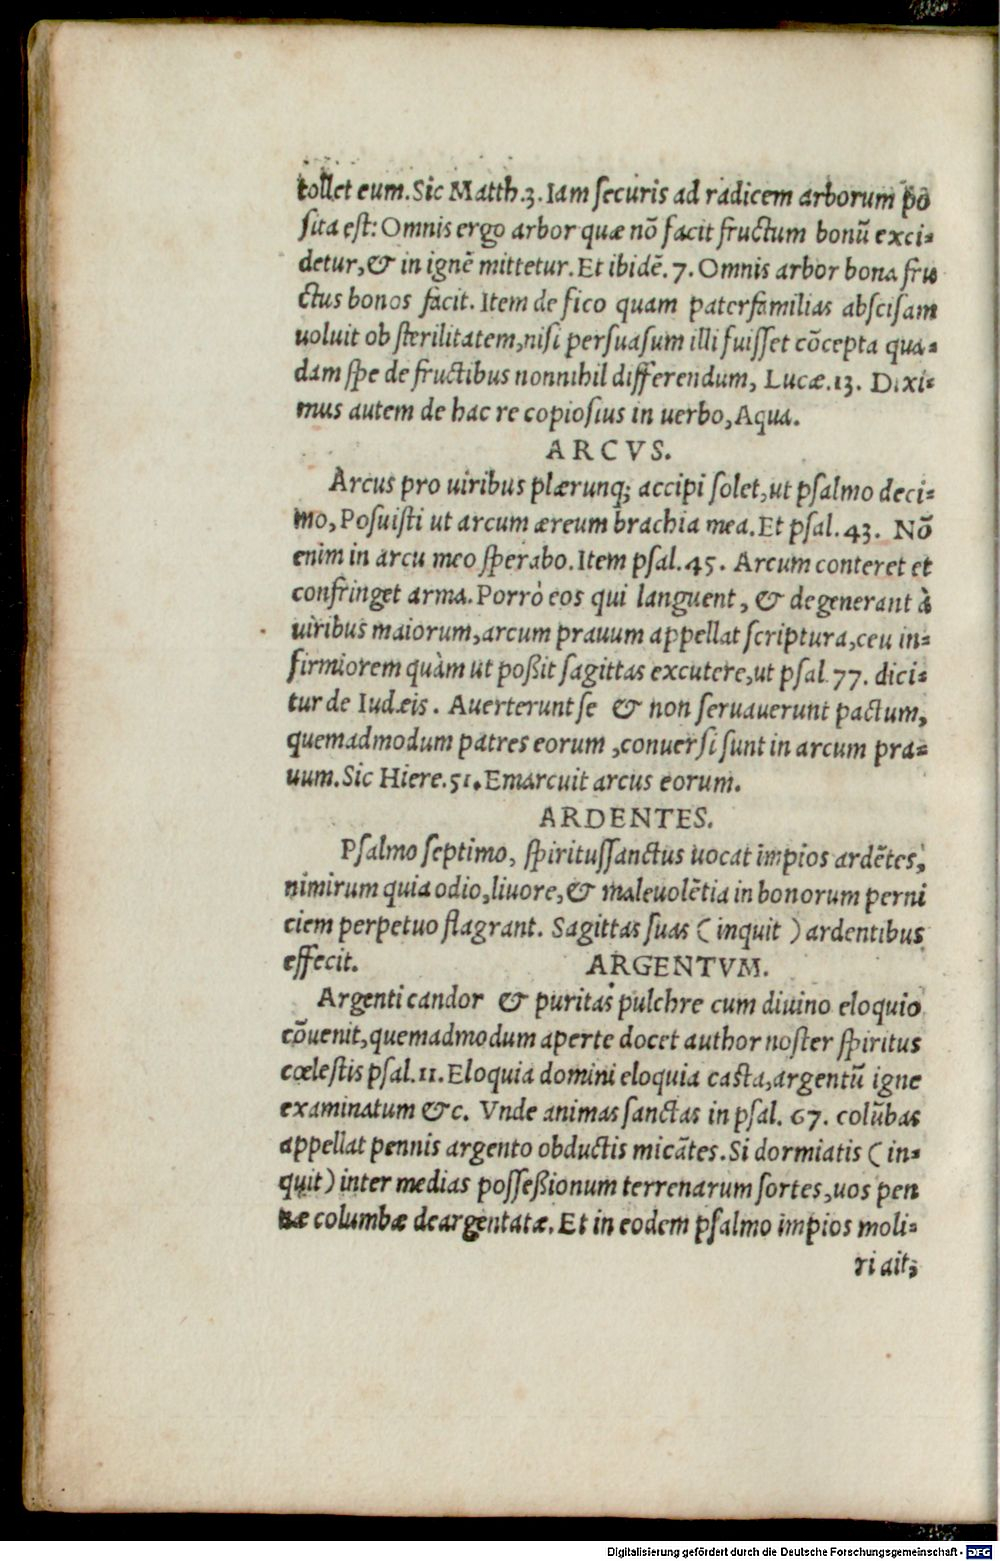 tollet eum. Sic Matth.3. Iam ſecuris ad radicem arborum po
ſita eſt: Omnis ergo arbor quæ nõ facit fructum bonũ exci⸗
detur, & in ignẽ mittetur. Et ibidẽ. 7. Omnis arbor bona fru
ctus bonos facit. Item de fico quam paterfamilias abſciſam
uoluit ob ſterilitatem, niſi perſuaſum illi fuiſſet cõcepta qua⸗
dam ſpe de fructibus nonnihil differendum, Lucæ.13. Dixi⸗
mus autem de hac re copioſius in uerbo, Aqua.
ARCVS.
Arcus pro uiribus plærunq; accipi ſolet, ut pſalmo deci⸗
mo, Poſuiſti ut arcum æreum brachia mea. Et pſal.43. Nõ
enim in arcu meo ſperabo. Item pſal.45. Arcum conteret et
confringet arma. Porrò eos qui languent, & degenerant à
uiribus maiorum, arcum prauum appellat ſcriptura, ceu in⸗
firmiorem quàm ut poßit ſagittas excutere, ut pſal.77. dici⸗
tur de Iudæis. Auerterunt ſe & non ſeruauerunt pactum,
quemadmodum patres eorum, conuerſi ſunt in arcum pra⸗
uum. Sic Hiere.51. Emarcuit arcus eorum.
ARDENTES.
Pſalmo ſeptimo, ſpirituſſanctus uocat impios ardẽtes,
nimirum quia odio, liuore, & maleuolẽtia in bonorum perni
ciem perpetuo flagrant. Sagittas ſuas (inquit) ardentibus
effecit. ARGENTVM.
Argenti candor & puritas pulchre cum diuino eloquio
cõuenit, quemadmodum aperte docet author noſter ſpiritus
cœleſtis pſal.11. Eloquia domini eloquia caſta, argentũ igne
examinatum &c. Vnde animas ſanctas in pſal. 67. colũbas
appellat pennis argento obductis micãtes. Si dormiatis (in⸗
quit) inter medias poſſeßionum terrenarum ſortes, uos pen
næ columbæ deargentatæ. Et in eodem pſalmo impios moli⸗
ri ait,
Digitalisierung gefördert durch die Deutsche Forschungsgemeinschaft - DFG